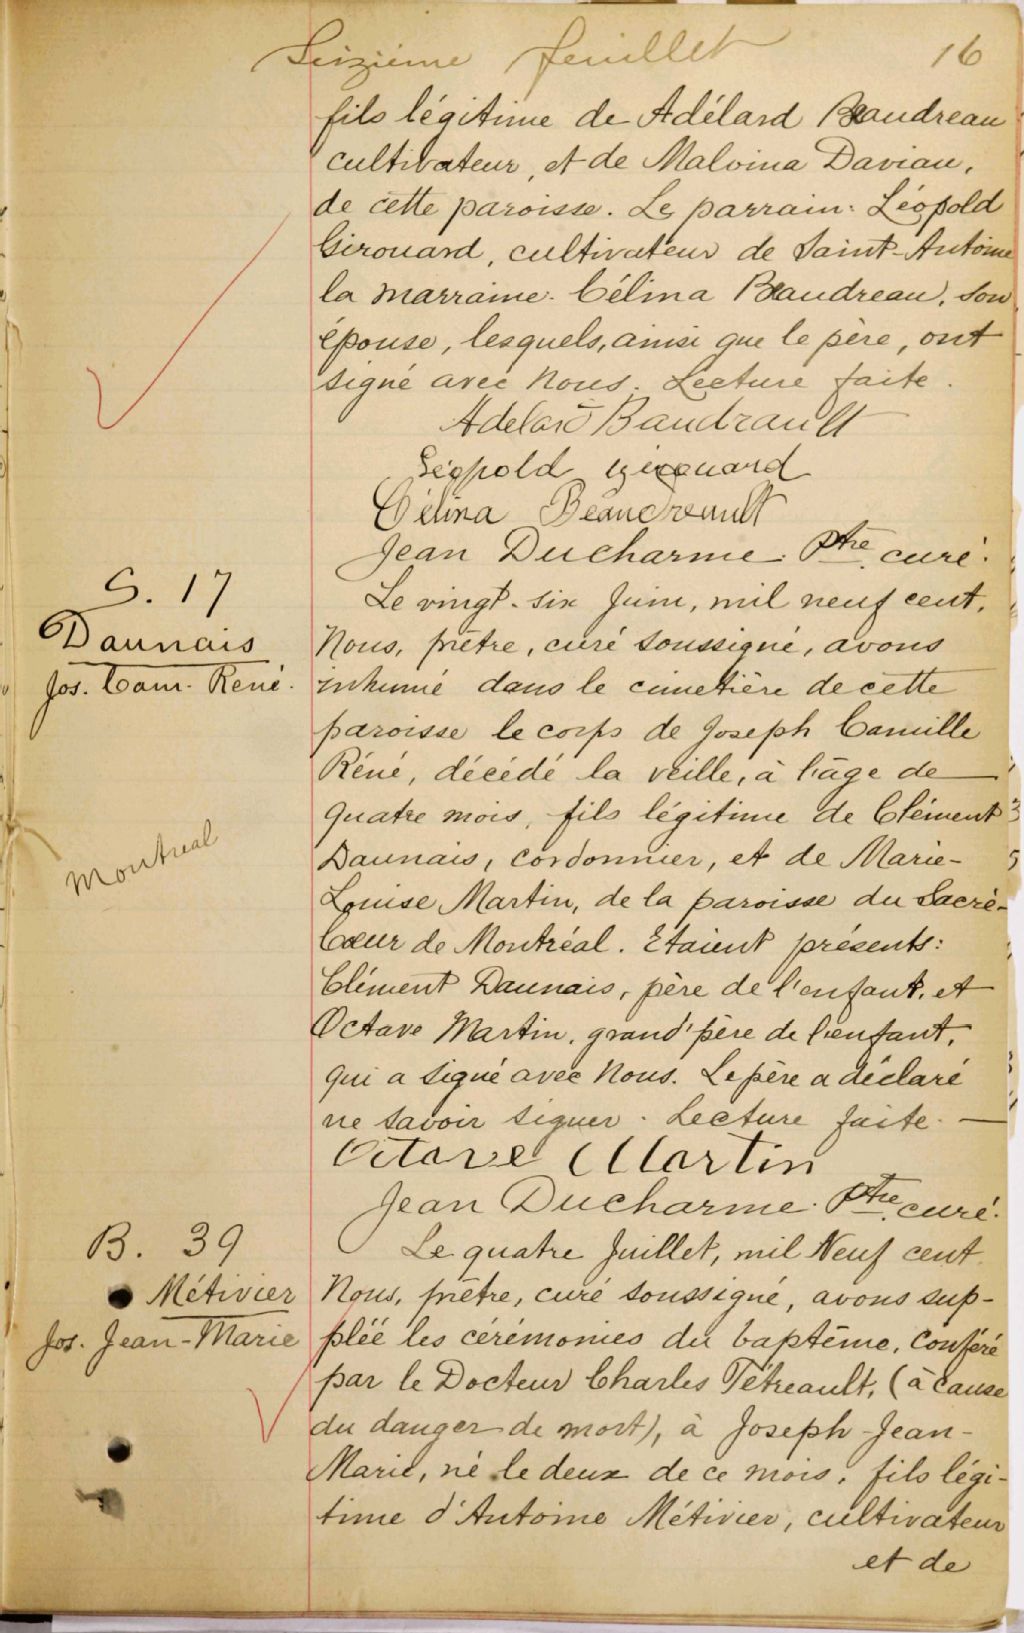 Seizième feuillet 16
fils légitime de Adélard Beaudreau
cultivateur, et de Malvina Daviau,
de cette paroisse. Le parrain: Léopold
Girouard, cultivateur de Saint-Antoine
la marraine. Célina Beaudreau, son
épouse, lesquels, ainsi que le père, ont
signé avec Nous. Lecture faite.
Adelard Baudrault
Léopold Girouard
Célina Beaudreault
Jean Ducharme. Ptre curé.
S. 17
Daunais
Jos. Cam. René.
Montreal
Le vingt-six Juin, mil neuf cent,
Nous, prêtre, curé soussigné, avons
inhumé dans le cimetière de cette
paroisse le corps de Joseph Camille
Réné, décédé la veille, à l'âge de
quatre mois, fils légitime de Clément
Daunais, cordonnier, et de Marie-
Louise Martin, de la paroisse du Sacré-
Cœur de Montréal. Etaient présents:
Clément Daunais, père de l'enfant, et
Octave Martin, grand'père de l'enfant,
qui a signé avec Nous. Le père a déclaré
ne savoir signer. Lecture faite. —
Octave Martin
Jean Ducharme. Ptre curé.
B. 39
Métivier
Jos. Jean-Marie
Le quatre Juillet, mil Neuf cent
Nous, prêtre, curé soussigné, avons sup-
pléé les cérémonies du baptême, conféré
par le Docteur Charles Tétreault, (à cause
du danger de mort), à Joseph-Jean-
Marie, né le deux de ce mois, fils légi-
time d'Antoine Métivier, cultivateur
et de